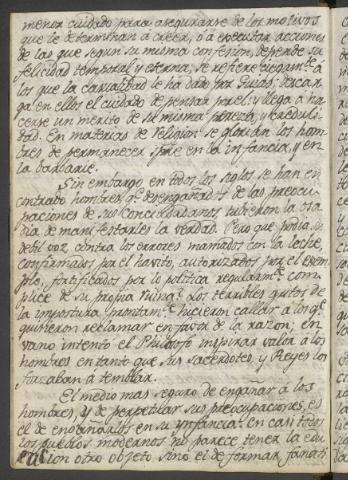 menor cuidado para asegurarse de los motivos
que le determinan à creer, ò à executar acciones
de las que segun su misma confesion, depende su
felicidad temporal y eterna; se refiere ciegamte. à
los que la casualidad le ha dado por Guias; descar
ga en ellos el cuidado de pensar por el: y llega à ha
cerse un merito de su misma pereza, y creduli-
dad. En materias de Religion se glorian los hom
bres de permanecer spre en la infancia, y en
la barbarie.
Sin embargo en todos los siglos se han en
contrado hombres qe. desengañados de las preocu
paciones de sus Conciudadanos tubieron la osa
dia de manifestarles la verdad. Pero que podia su
debil voz contra los errores mamados con la leche,
confirmados por el havito, autorizados por el exem
plo, fortificados por la politica regularmte. com
plice de su propia ruina? Los terribles gritos de
la impostura prontamte. hicieron callar à los qe.
quisieron reclamar en favor de la razon; en
vano intentó el Philosofo inspirar valor à los
hombres en tanto que sus Sacerdotes, y Reyes los
forzaban à temblar.
El medio mas seguro de engañar à los
hombres, y de perpetuar sus preocupaciones, es
el de engañarlos en su ynfancia: en casi todos
los pueblos modernos no parece tener la edu
cacion otro objeto sino el de formar fanati